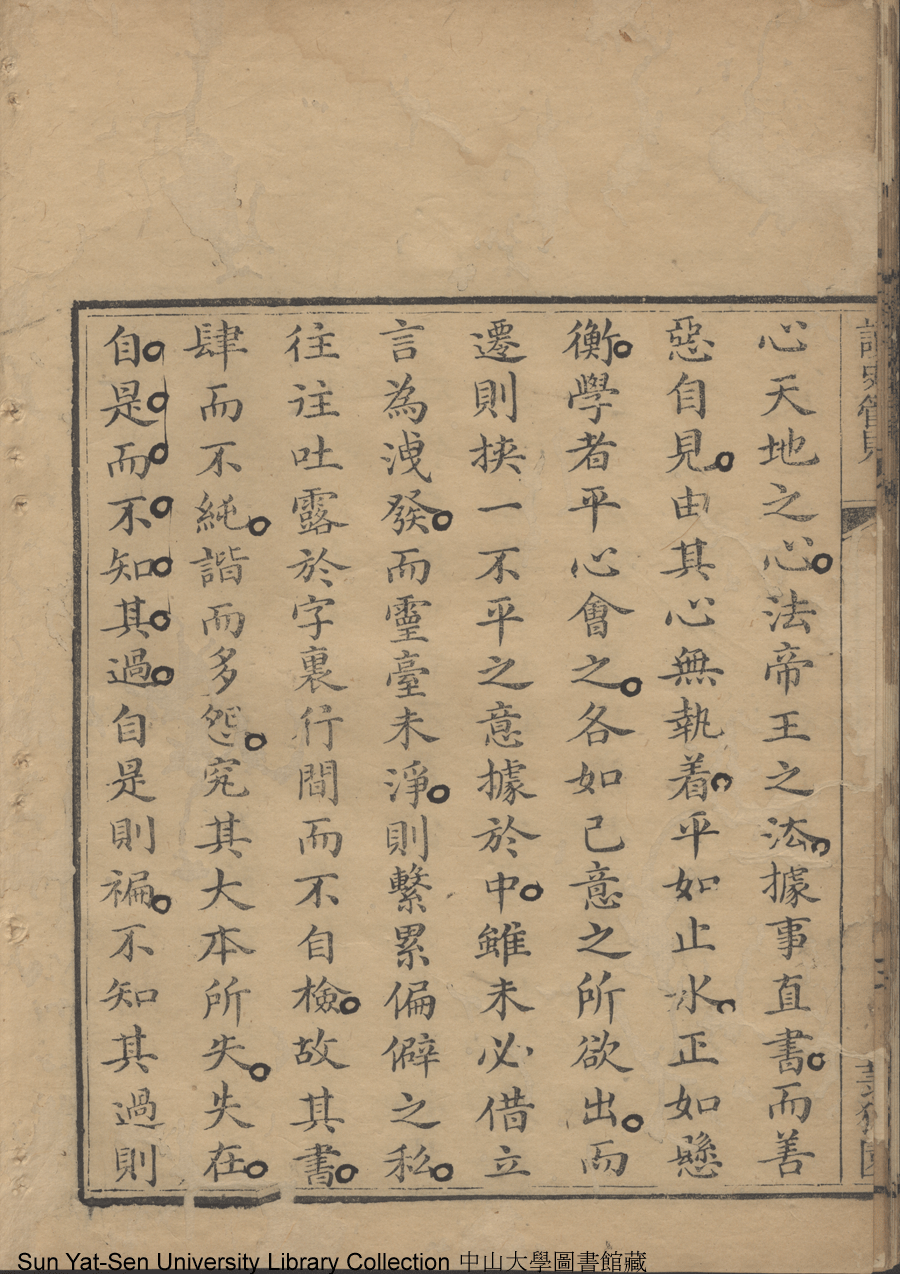 心天地之心法帝王之法據事直書而善
惡自見由其心無執着平如止水正如懸
衡學者平心會之各如己意之所欲出而
遷則挾一不平之意據於中雖未必借立
言為洩發而靈臺未淨則繫累偏僻之私
往往吐露於字裏行間而不自檢故其書
肆而不純諧而多怨究其大本所失失在
自是而不知其過自是則褊不知其過則
Sun Yat-Sen University Library Collection 中山大學圖書館藏